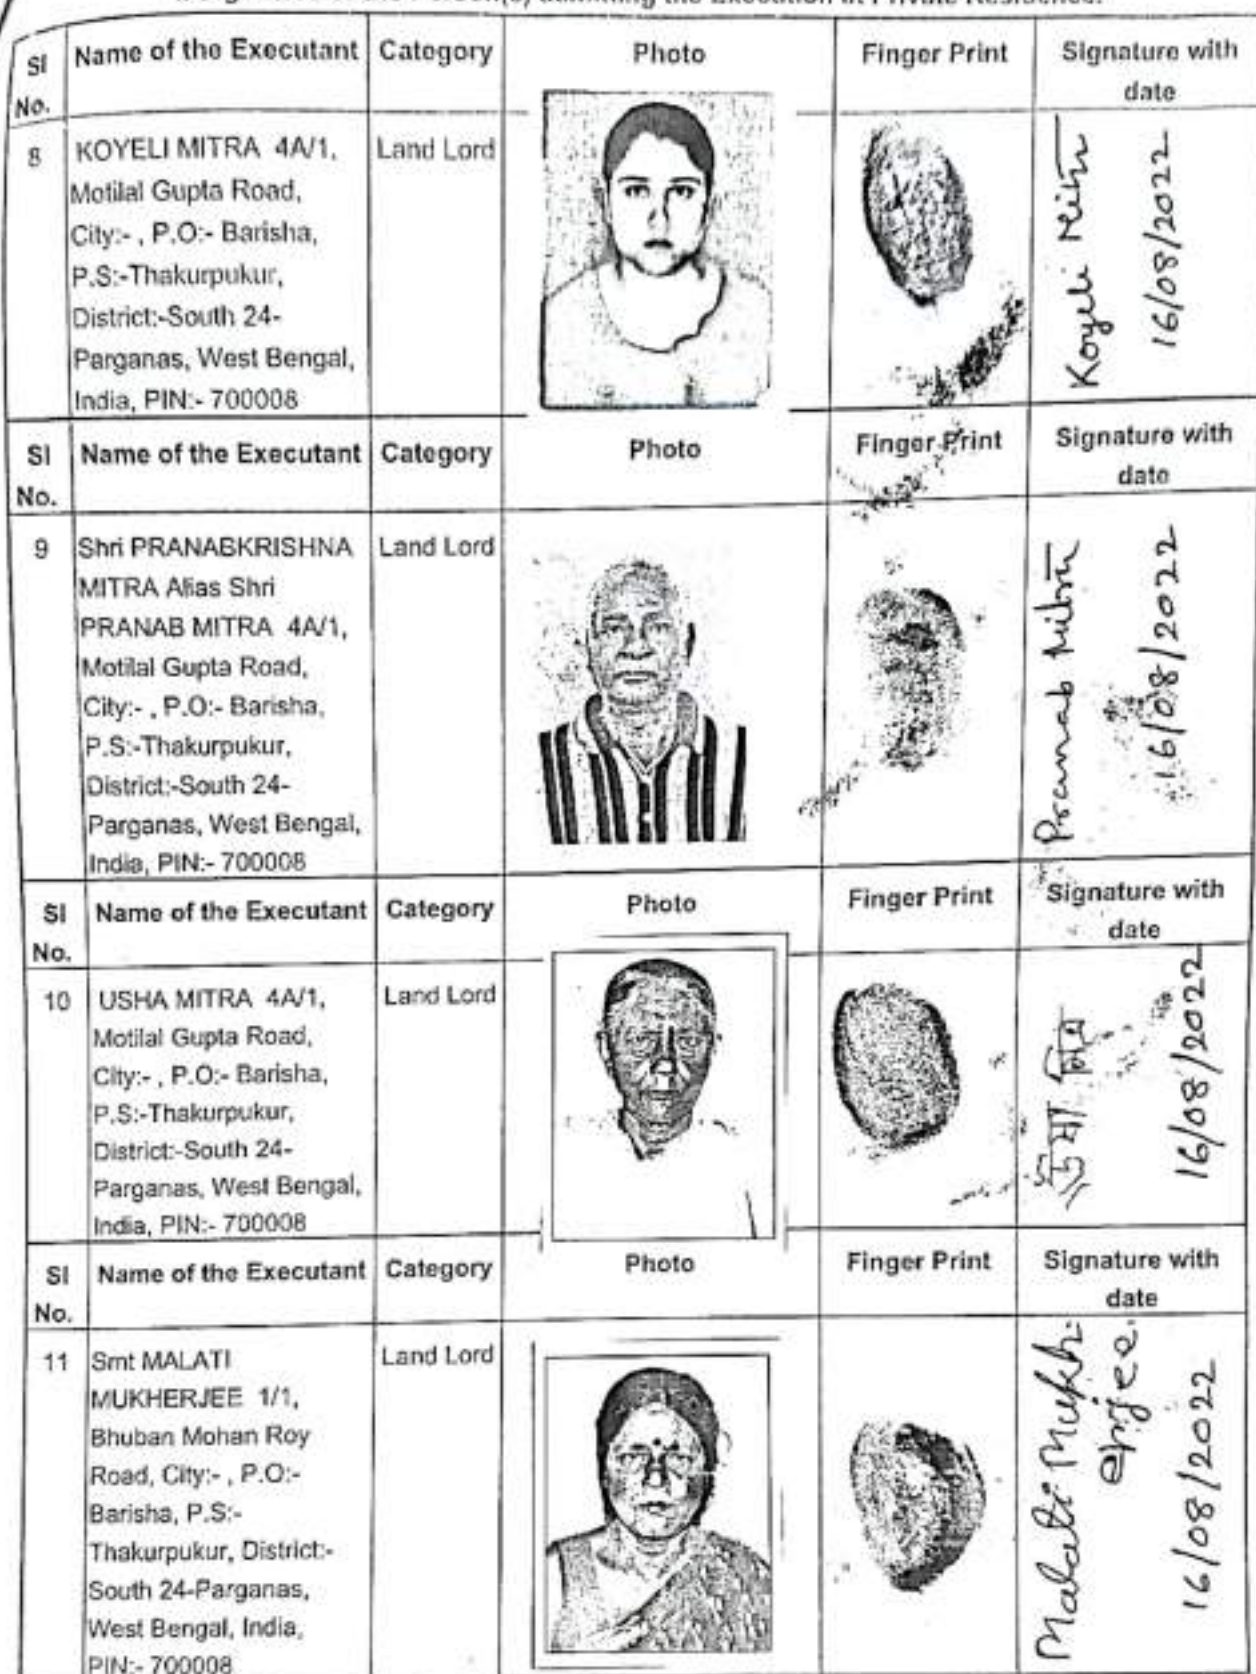 of the Person(s) admitting the Execution at Private Residence.
Sl No. Name of the Executant Category Photo Finger Print Signature with date
8 KOYELI MITRA 4A/1, Land Lord
Motilal Gupta Road,
City:- , P.O:- Barisha,
P.S:-Thakurpukur,
District:-South 24-
Parganas, West Bengal,
India, PIN:- 700008
Koyeli Mitra
16/08/2022
Sl No. Name of the Executant Category Photo Finger Print Signature with date
9 Shri PRANABKRISHNA Land Lord
MITRA Alias Shri
PRANAB MITRA 4A/1,
Motilal Gupta Road,
City:- , P.O:- Barisha,
P.S:-Thakurpukur,
District:-South 24-
Parganas, West Bengal,
India, PIN:- 700008
Pranab Mitra
16/08/2022
Sl No. Name of the Executant Category Photo Finger Print Signature with date
10 USHA MITRA 4A/1, Land Lord
Motilal Gupta Road,
City:- , P.O:- Barisha,
P.S:-Thakurpukur,
District:-South 24-
Parganas, West Bengal,
India, PIN:- 700008
ঊষা মিত্র
16/08/2022
Sl No. Name of the Executant Category Photo Finger Print Signature with date
11 Smt MALATI Land Lord
MUKHERJEE 1/1,
Bhuban Mohan Roy
Road, City:- , P.O:-
Barisha, P.S:-
Thakurpukur, District:-
South 24-Parganas,
West Bengal, India,
PIN:- 700008
Malati Mukh-
erjee.
16/08/2022